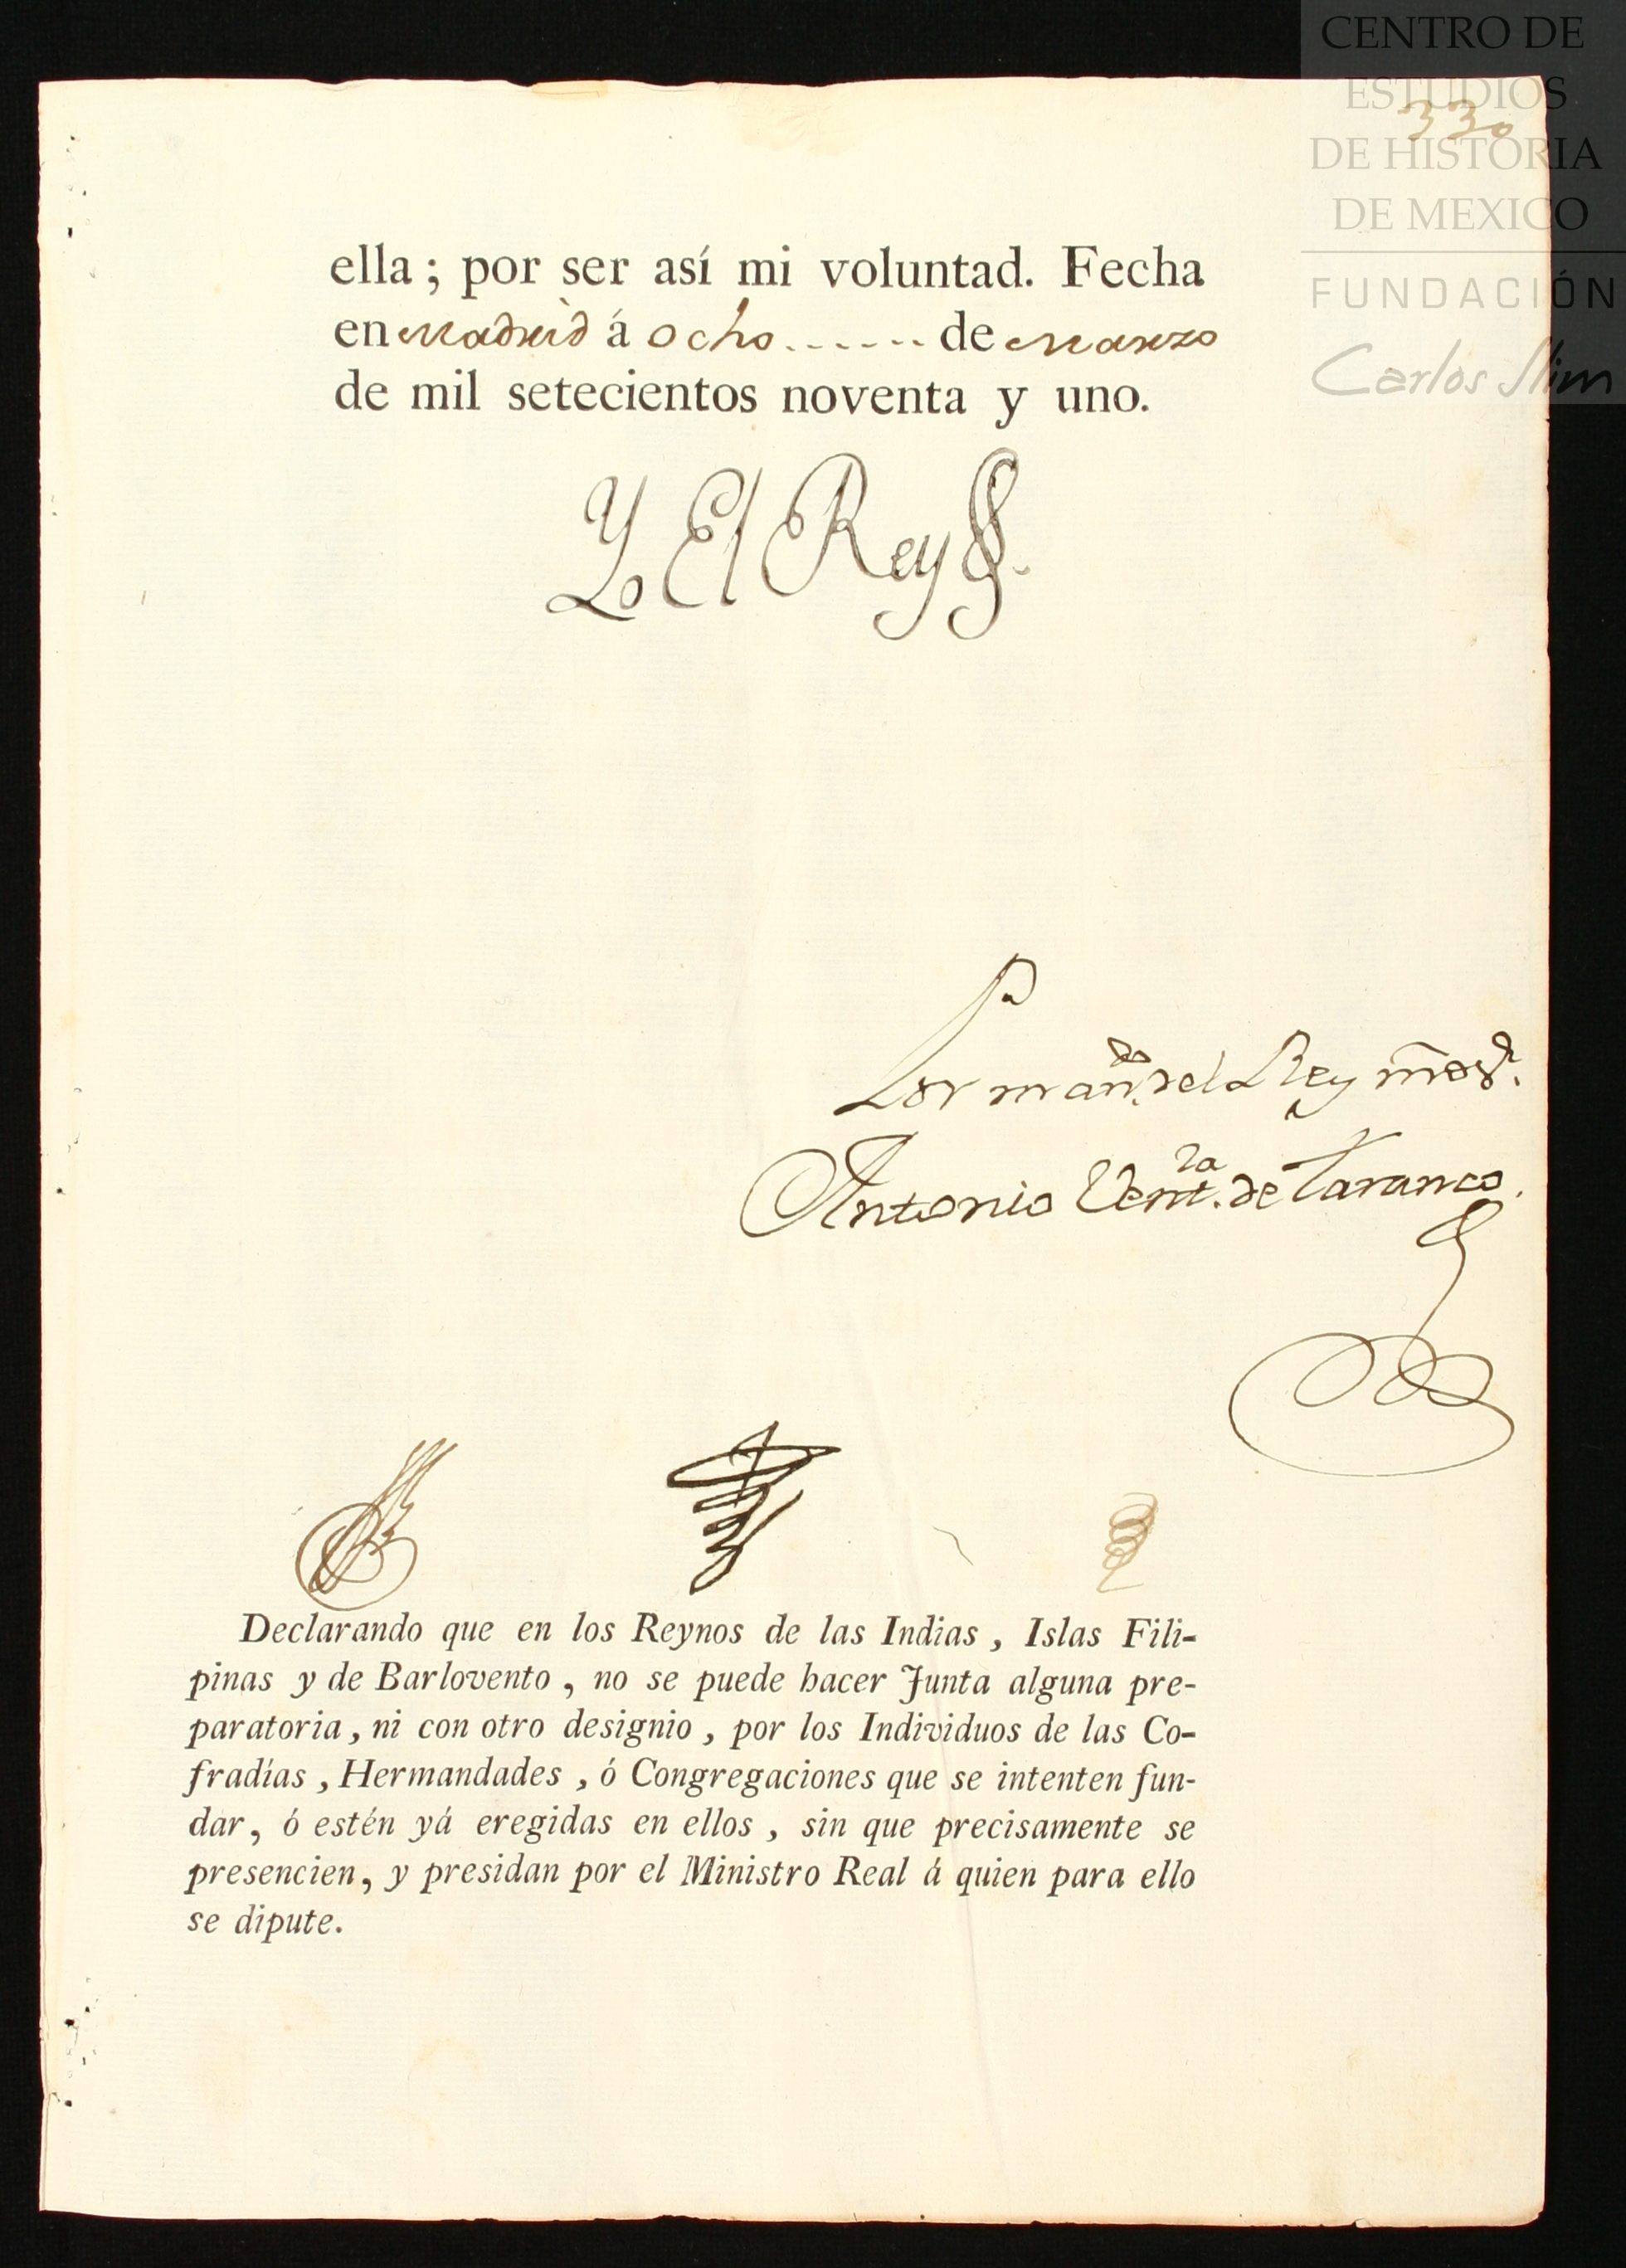 CENTRO DE
ESTUDIOS
DE HISTORIA
DE MEXICO
FUNDACIÓN
Carlos Slim
330
ella; por ser así mi voluntad. Fecha
en Madrid á ocho ...... de Marzo
de mil setecientos noventa y uno.
Yo El Rey
Por man.do del Rey nro S.r
Antonio Vent.ra de Taranco.
Declarando que en los Reynos de las Indias, Islas Fili-
pinas y de Barlovento, no se puede hacer Junta alguna pre-
paratoria, ni con otro designio, por los Individuos de las Co-
fradías, Hermandades, ó Congregaciones que se intenten fun-
dar, ó estén yá eregidas en ellos, sin que precisamente se
presencien, y presidan por el Ministro Real á quien para ello
se dipute.